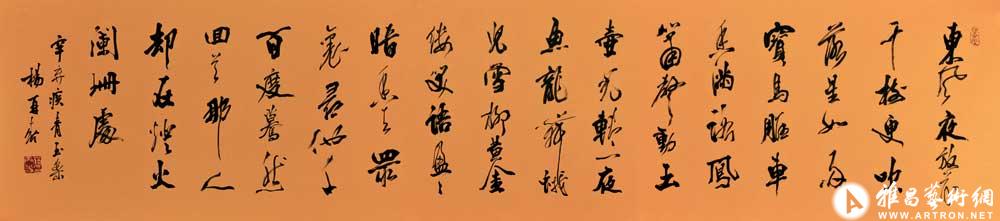 東風夜放花
千樹更吹
落星如雨
寶馬雕車
香滿路鳳
簫聲動玉
壺光轉一夜
魚龍舞蛾
兒雪柳黄金
縷笑語盈〻
暗香去眾
裏尋他千
百度驀然
回首那人
却在燈火
闌珊處
辛弃疾青玉案
楊
雅昌藝術網
WWW.ARTRON.NET